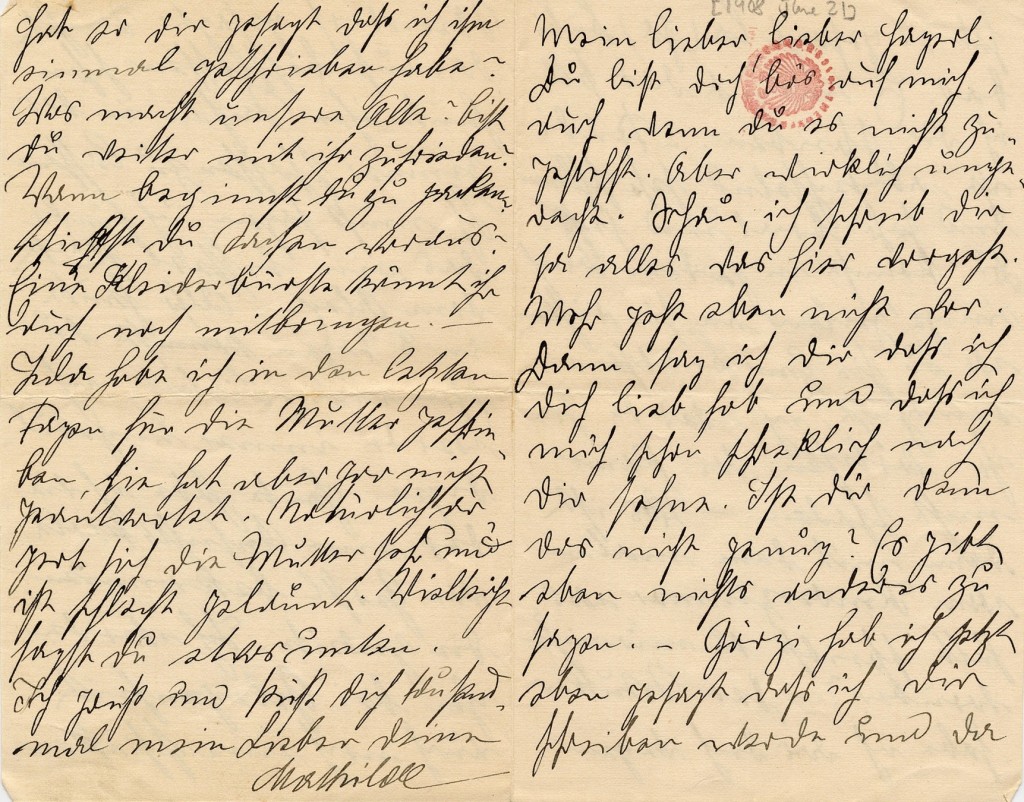 [1908 June 21]
Mein lieber lieber
Du bist doch bös auf mich,
auch wenn du es nicht zu-
gestehst. Aber wirklich unge-
recht. Schau, ich schreib dir
ja alles was hier vorgeht.
Mehr geht eben nicht vor.
Dann sag ich dir dass ich
dich lieb hab und dass ich
mich schon schrecklich nach
dir sehne. Ist dir denn
das nicht genug? Es gibt
eben nichts anderes zu
sagen. – Görgi hab ich jetzt
eben gesagt dass ich dir
schreiben werde und da
Hat er dir gesagt dass ich ihm
einmal geschrieben habe?
Was macht unsere Alte? bist
du weiter mit ihr zufrieden?
Wann beginnst du zu packen?
schickst du Sachen voraus?
Eine Kleiderbürste könnt ihr
auch noch mitbringen. –
habe ich in den letzten
Tagen für die Mutter geschrie
ben, sie hat aber gar nicht
geantwortet. Natürlich är
gert sich die Mutter sehr und
ist schlecht gelaunt. Vielleicht
sagst du etwas unten.
Ich grüß und küß dich tausend-
mal mein Lieber deine
Mathilde